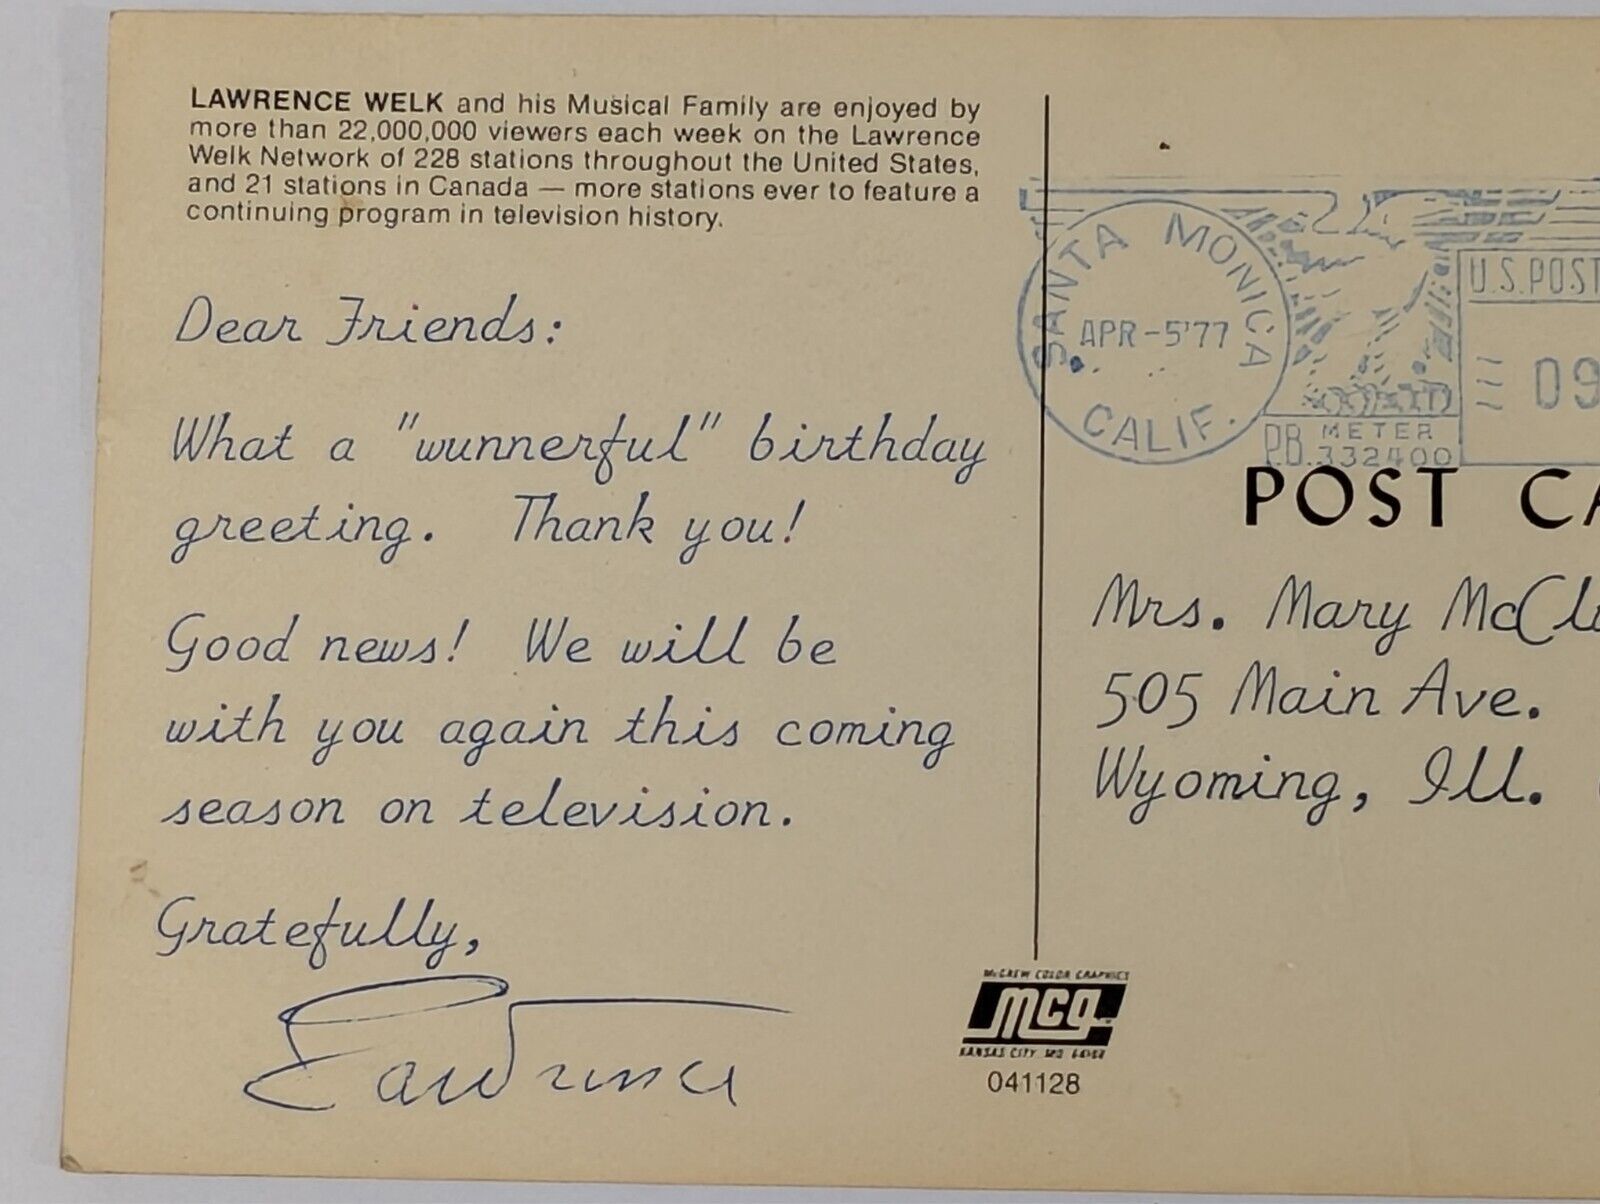 LAWRENCE WELK and his Musical Family are enjoyed by
more than 22,000,000 viewers each week on the Lawrence
Welk Network of 228 stations throughout the United States,
and 21 stations in Canada — more stations ever to feature a
continuing program in television history.
Dear Friends:
What a "wunnerful" birthday
greeting. Thank you!
Good news! We will be
with you again this coming
season on television.
Gratefully,
Lawrence
SANTA MONICA
APR-5'77
CALIF.
U.S.POST
09
P.B. METER
332400
POST CA
Mrs. Mary McCl
505 Main Ave.
Wyoming, Ill.
McGREW COLOR GRAPHICS
mcg
KANSAS CITY, MO. 64108
041128